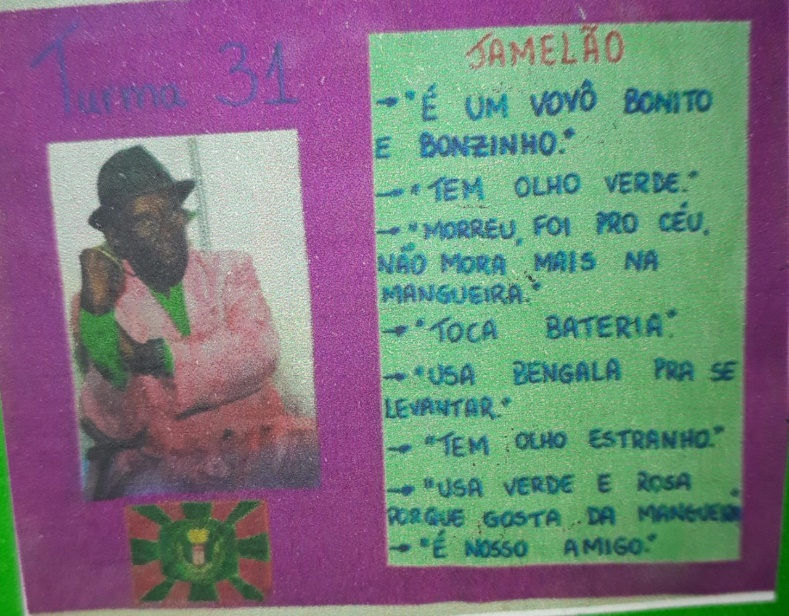 Turma 31
JAMELÃO
→ "É UM VOVÔ BONITO
E BONZINHO."
→ "TEM OLHO VERDE."
→ "MORREU, FOI PRO CÉU,
NÃO MORA MAIS NA
MANGUEIRA."
→ "TOCA BATERIA".
→ "USA BENGALA PRA SE
LEVANTAR."
→ "TEM OLHO ESTRANHO."
→ "USA VERDE E ROSA
PORQUE GOSTA DA MANGUEIRA"
→ "É NOSSO AMIGO."